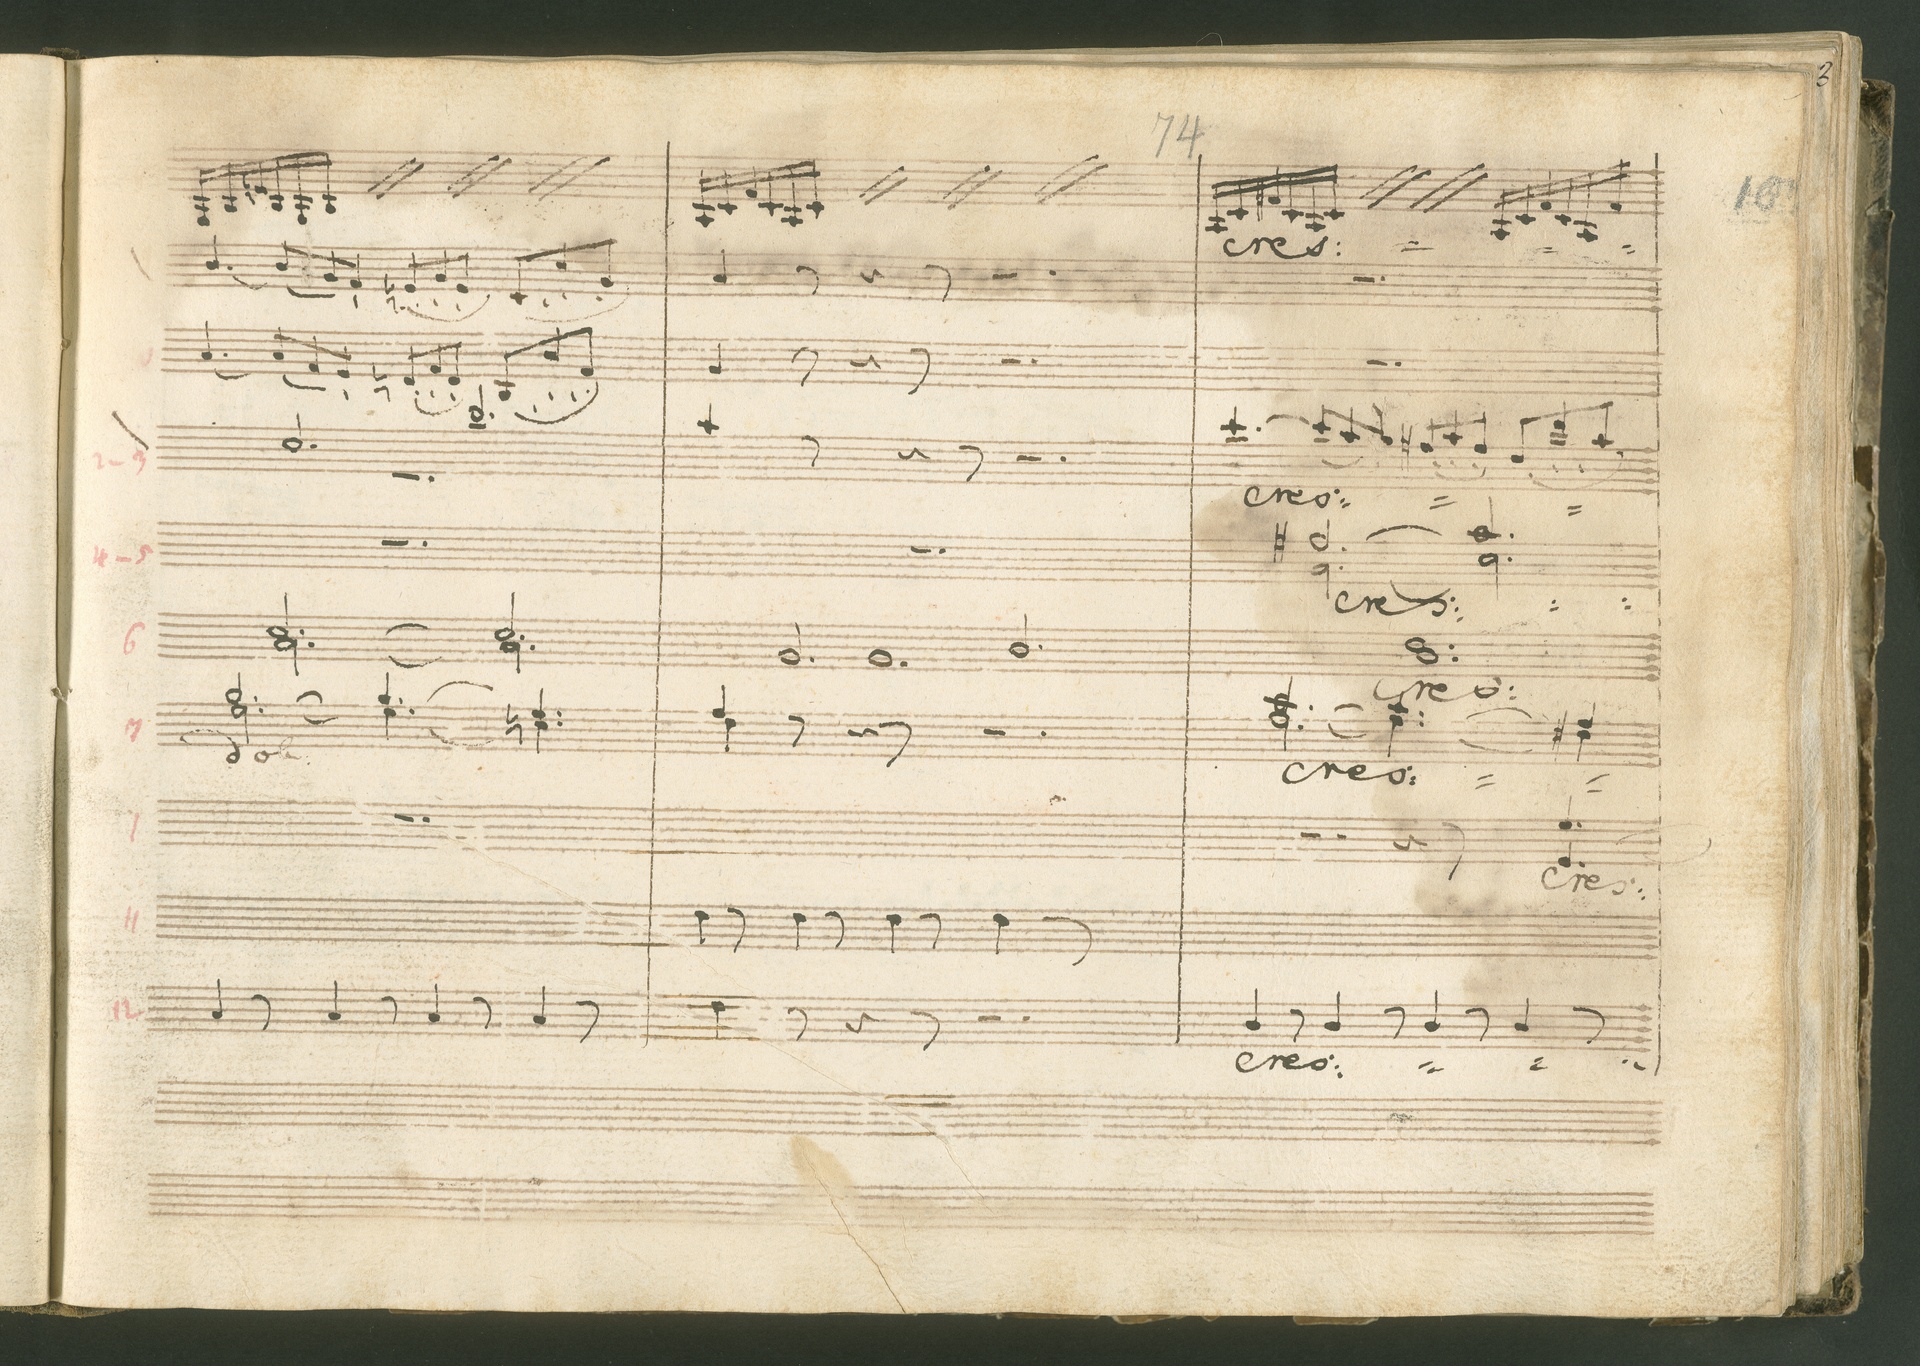 3
74
10
cres:
2-3
cres:
4-5
cres:
6
cres:
7
dol.
cres:
1
cres:
11
12
cres: